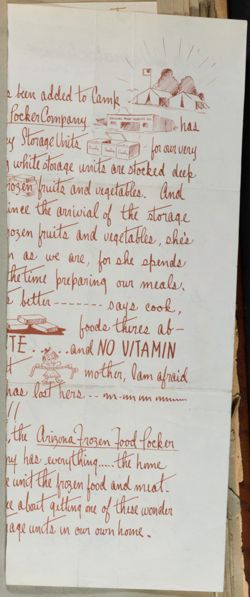 s been added to Camp
Packer Company has
ey Storage Units for our very
g white storage units are stocked deep
frozen fruits and vegetables. And
since the arrivial of the storage
frozen fruits and vegetables, she's
n as we are, for she spends
the time preparing our meals.
s better ------- says cook,
foods theres ab-
TE.....and NO VITAMIN
mother, I am afraid
has lost hers -- m-um um
!!
, the Arizona Frozen Food Packer
ny has everything.....the home
e unit the frozen food and meat.
ee about getting one of these wonder
rage units in our own home.